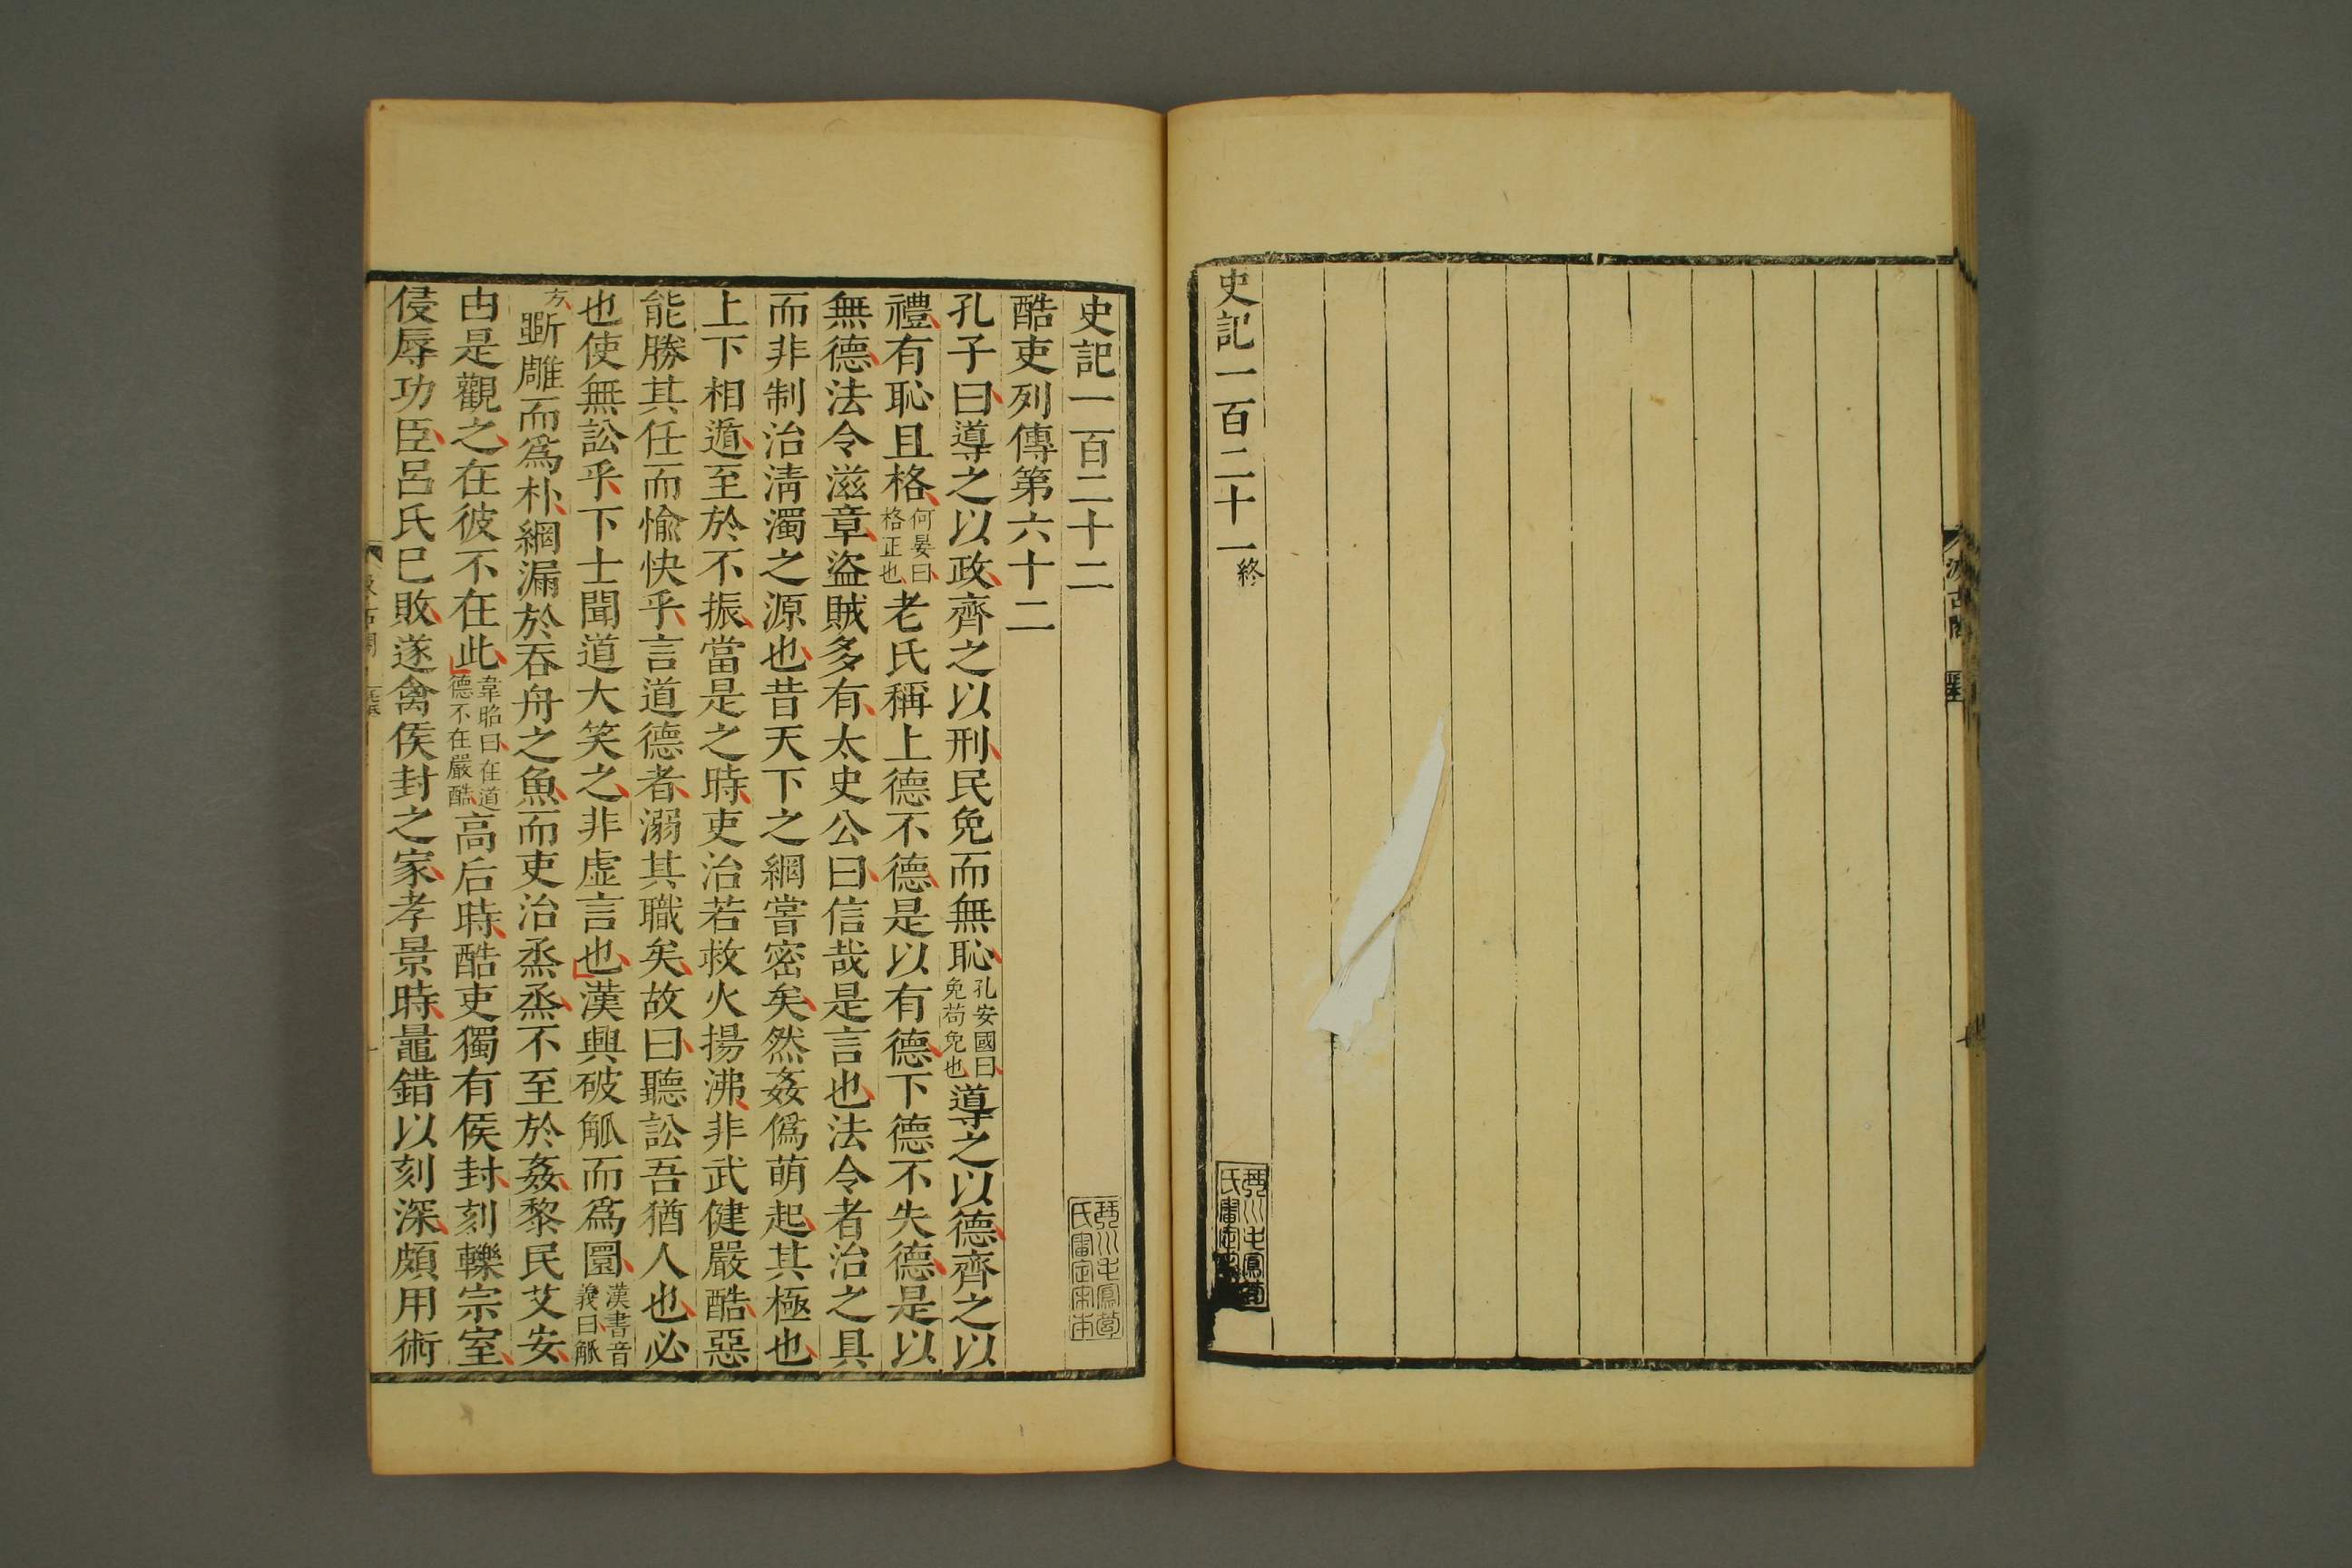 史記一百二十一終
汲古閣
史記一百二十二
酷吏列傳第六十二
孔子曰導之以政齊之以刑民免而無恥孔安國曰免苟免也導之以德齊之以
禮有恥且格何晏曰格正也老氏稱上德不德是以有德下德不失德是以
無德法令滋章盜賊多有太史公曰信哉是言也法令者治之具
而非制治淸濁之源也昔天下之網嘗密矣然姦僞萌起其極也
上下相遁至於不振當是之時吏治若救火揚沸非武健嚴酷惡
能勝其任而愉快乎言道德者溺其職矣故曰聽訟吾猶人也必
也使無訟乎下士聞道大笑之非虛言也漢興破觚而爲圜漢書音義曰觚
方斲雕而爲朴網漏於吞舟之魚而吏治烝烝不至於姦黎民艾安
由是觀之在彼不在此韋昭曰在道德不在嚴酷高后時酷吏獨有侯封刻轢宗室
侵辱功臣呂氏已敗遂禽侯封之家孝景時鼂錯以刻深頗用術